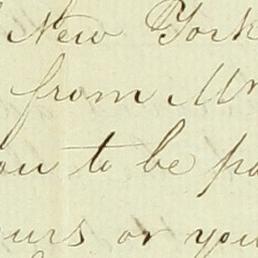 New York
from Mr
ou to be pa
ours or you